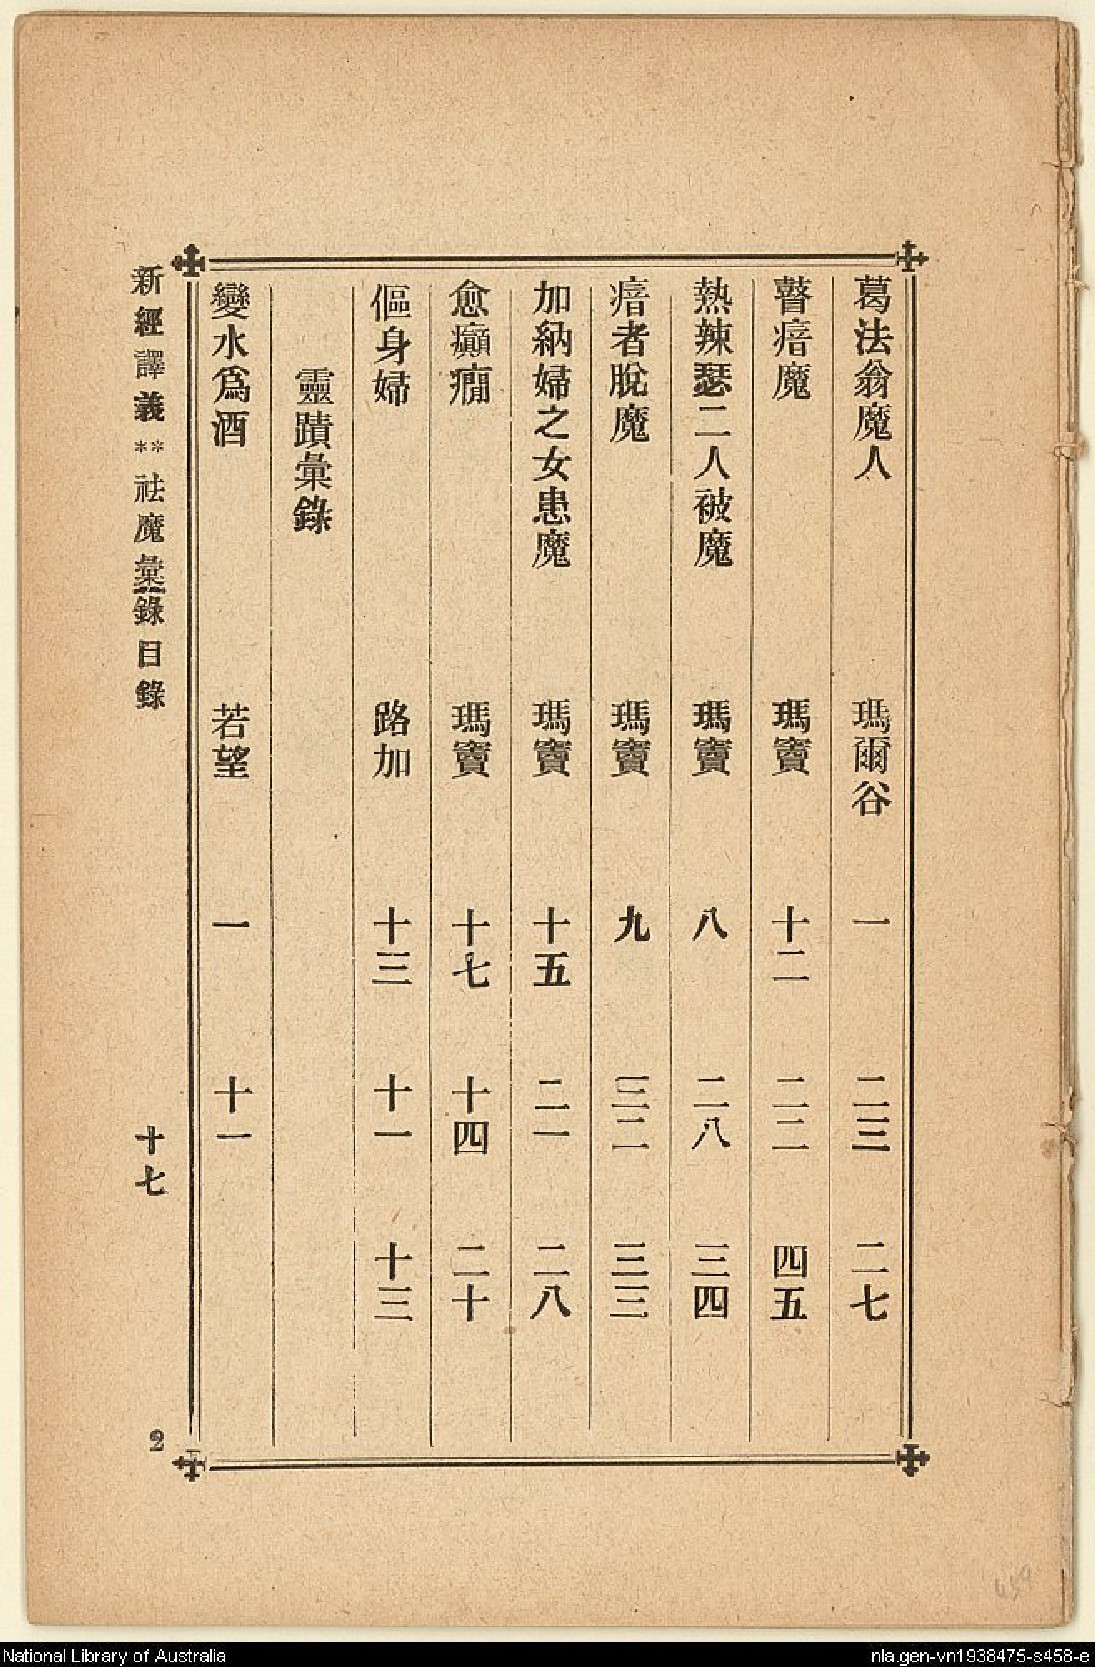 葛法翁魔人 瑪爾谷 一 二三 二七
瞽瘖魔 瑪竇 十二 二二 四五
熱辣瑟二人被魔 瑪竇 八 二八 三四
瘖者脫魔 瑪竇 九 三二 三三
加納婦之女患魔 瑪竇 十五 二一 二八
愈癲癇 瑪竇 十七 十四 二十
傴身婦 路加 十三 十一 十三
靈蹟彙錄
變水爲酒 若望 一 十一
新經譯義**祛魔彙錄目錄 十七 2
National Library of Australia
nla.gen-vn1938475-s458-e